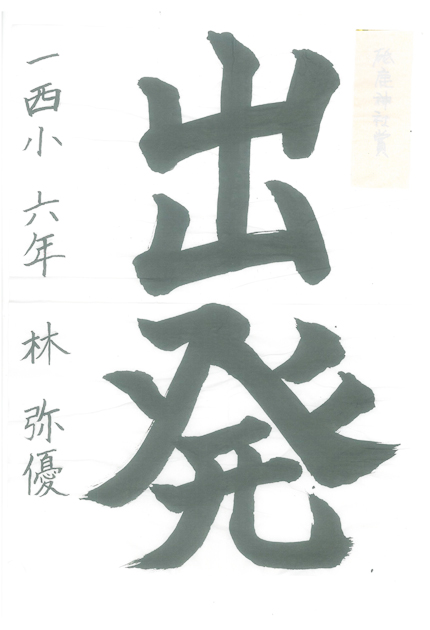 出発
一西小 六年 林 弥優